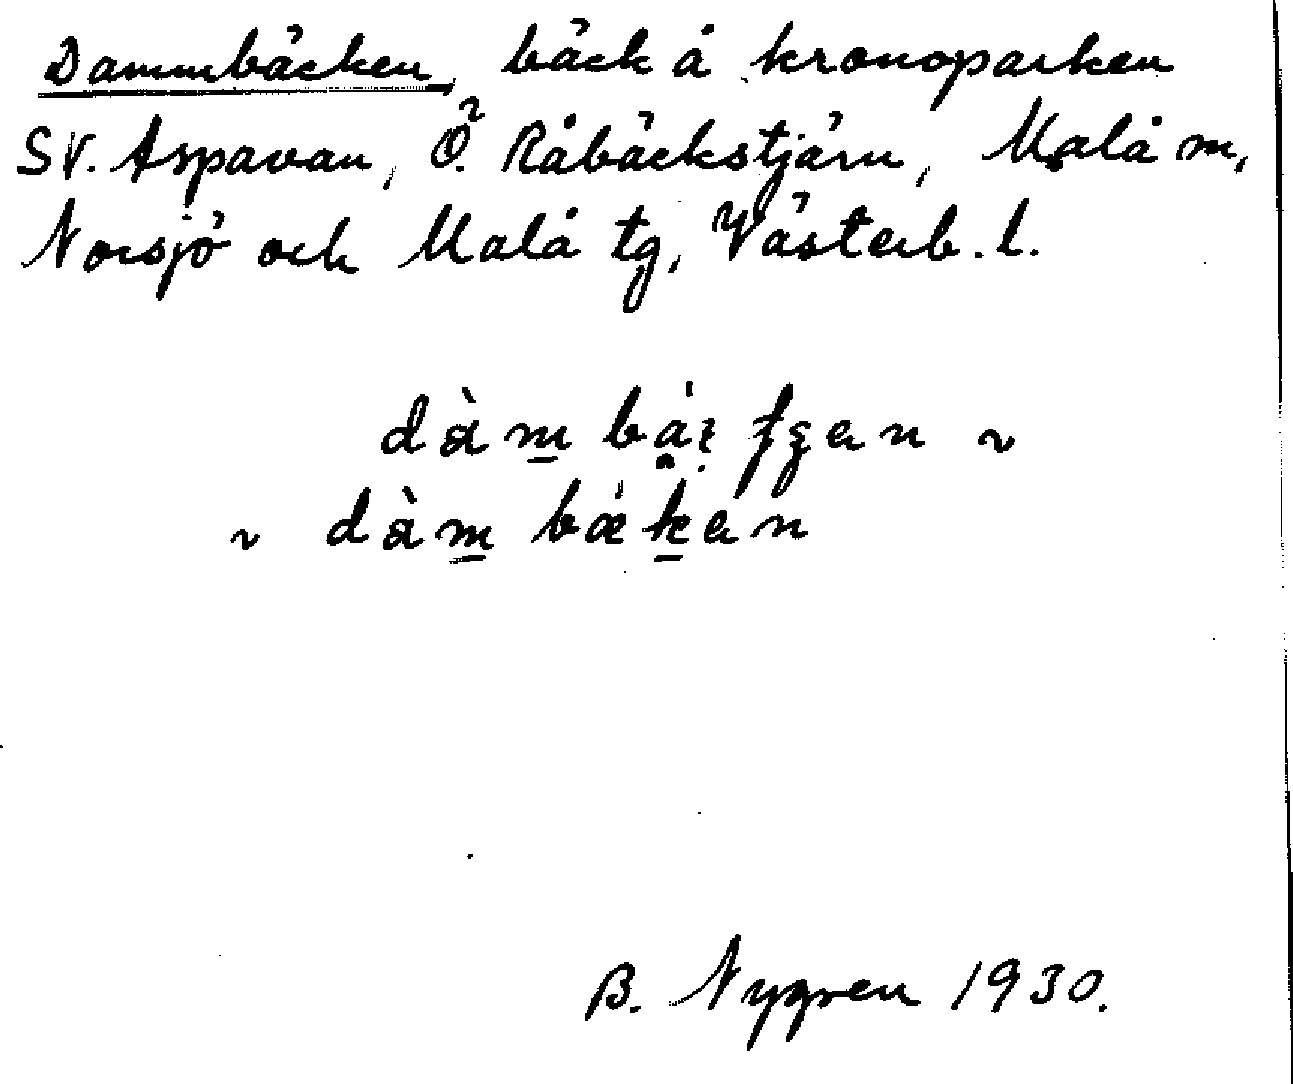 Dammbäcken, bäck å kronoparken
SV. Aspavan, Ö. Råbäckstjärn, Malå sn,
Norsjö och Malå tg, Västerb. l.
dàm
~ dàm bækan
B. Nygren 1930.